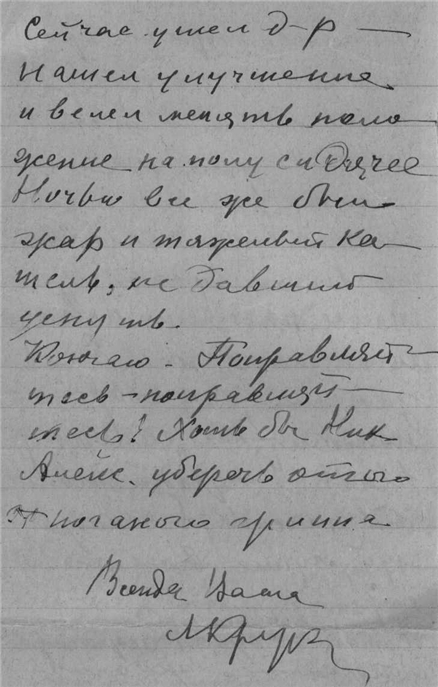 Сейчас ушел д-р —
Нашел улучшение
и велел менять поло
жение на полу сидячее
Ночью все же был
жар и тяжелый ка
шель, не давший
уснуть.
Кончаю — Поправляй
тесь — поправляй
тесь! Хоть бы Ник
Алекс. уберечь от
поганого гриппа
Всегда Ваша